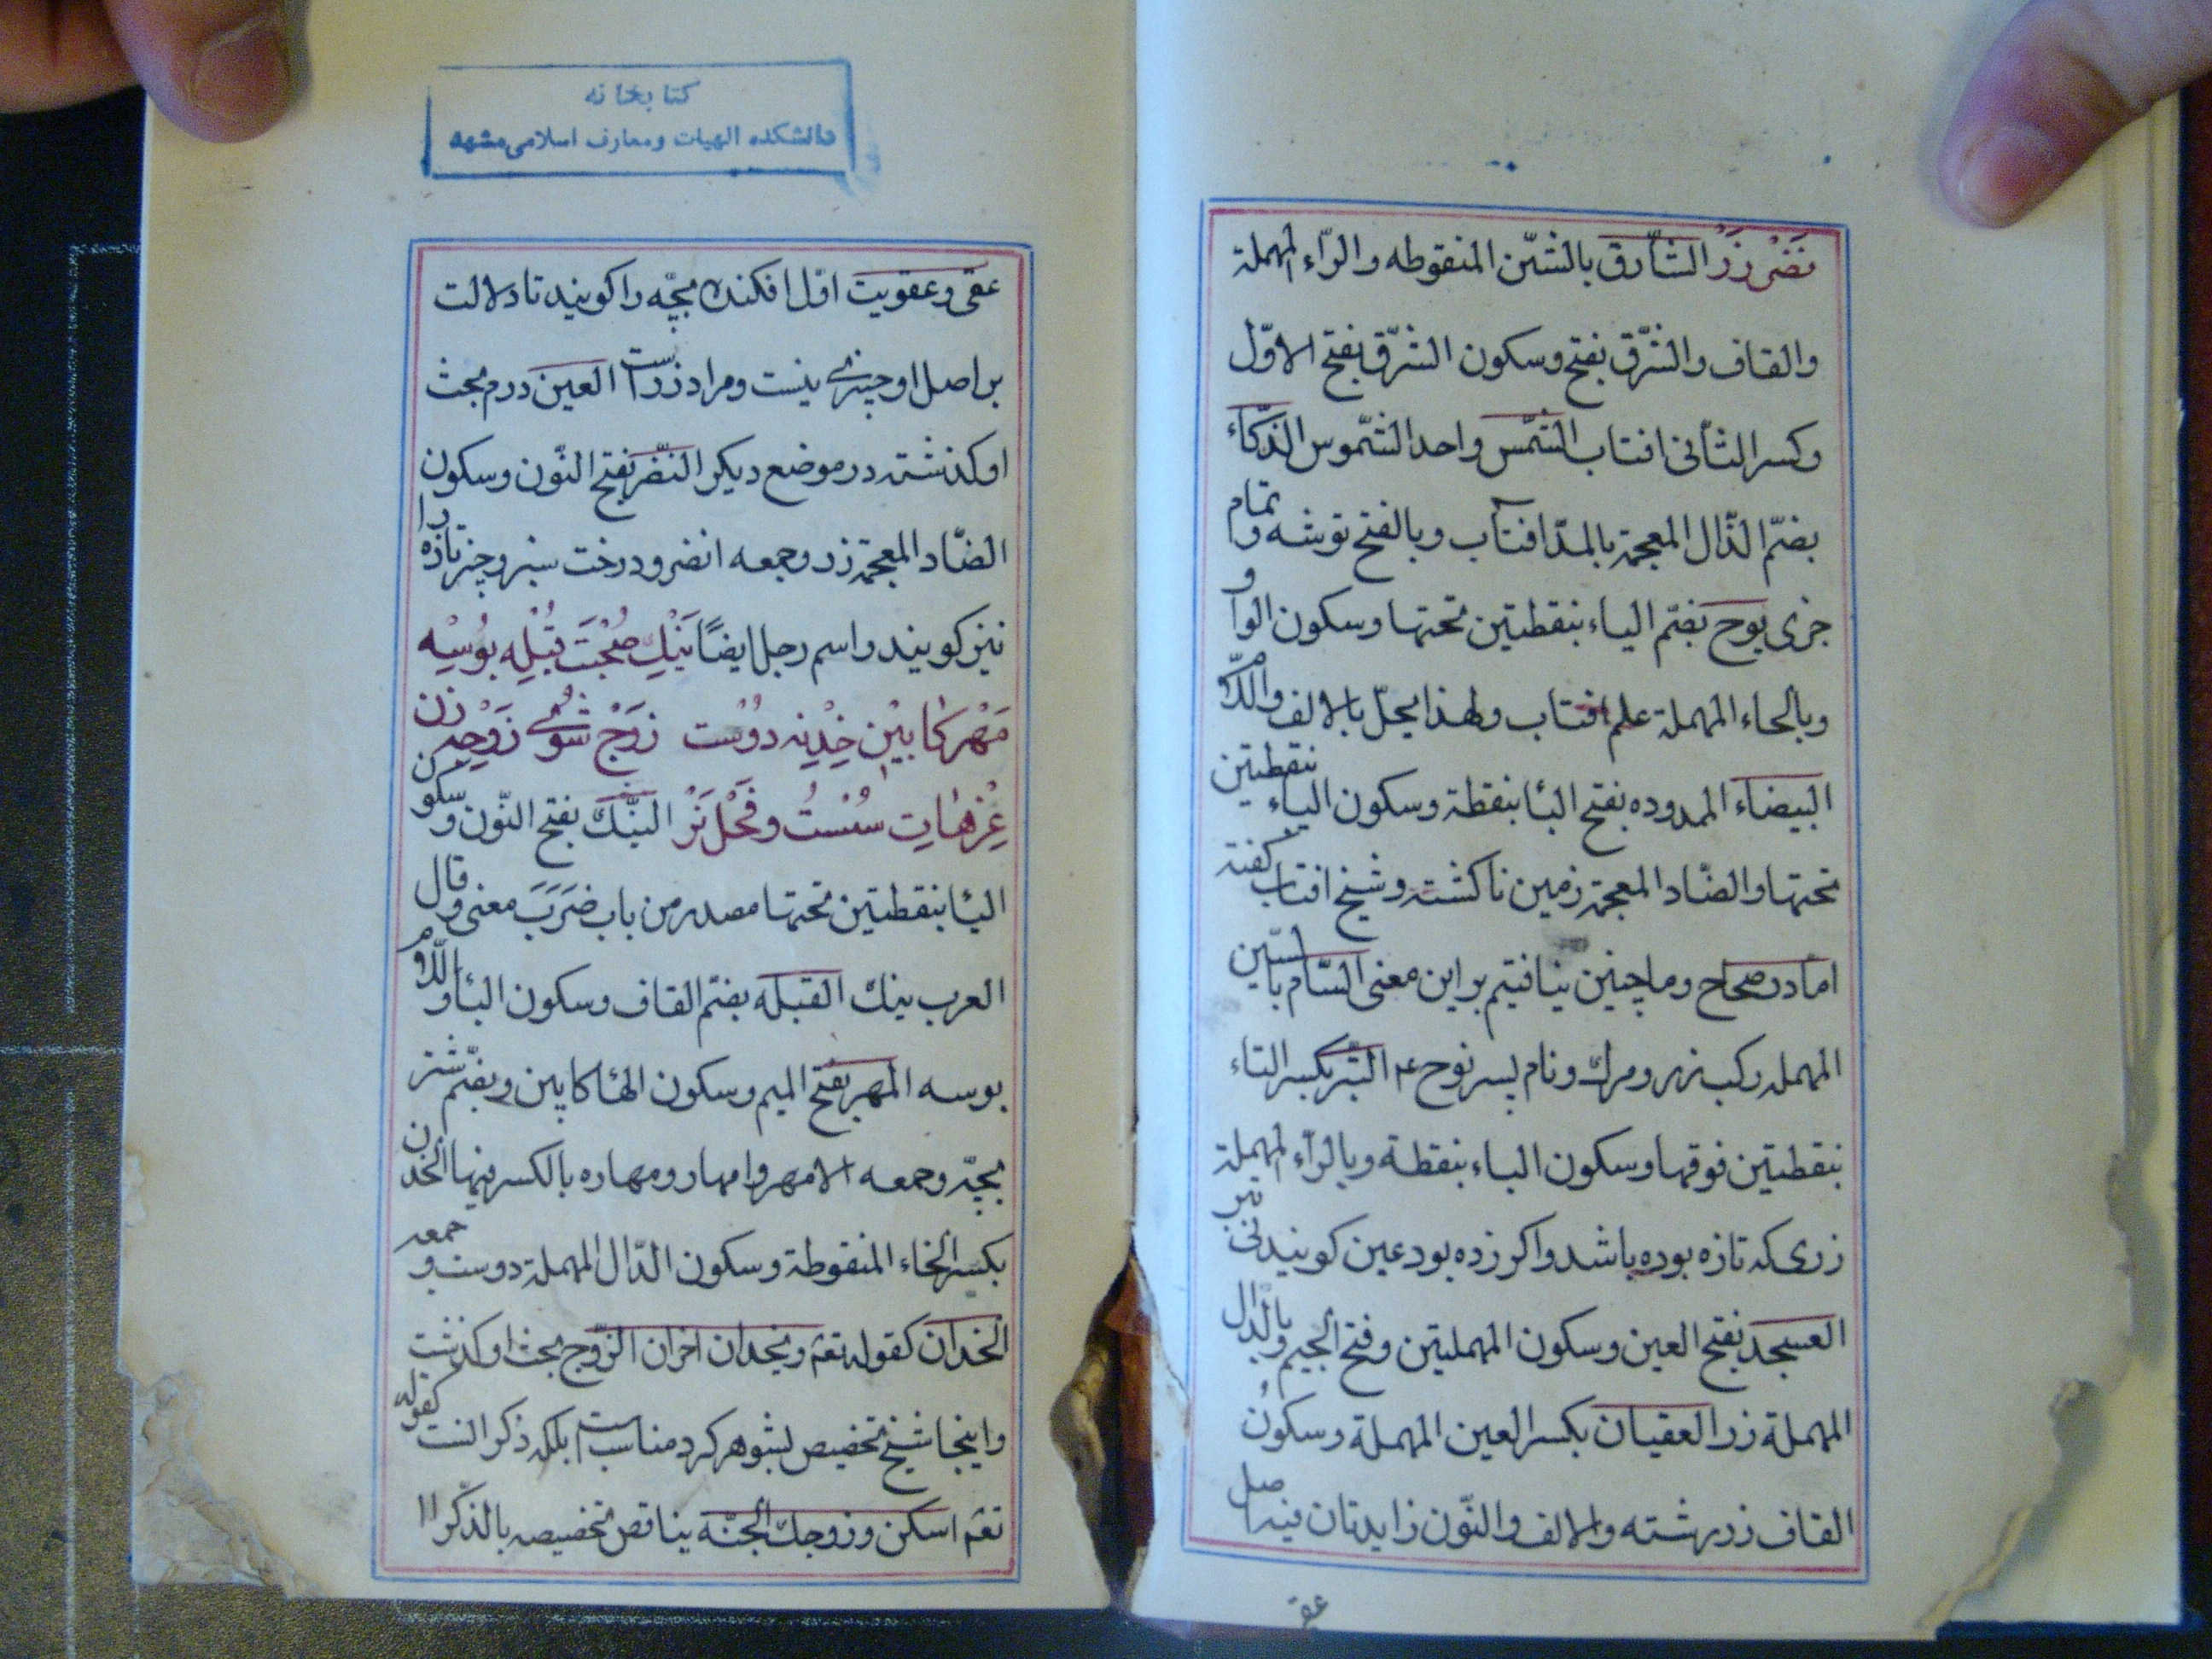 نَضْر زَرْ الشّارق بالشّین المنقوطه والرّاء المهملة
والقاف والشّرق بفتح وسکون الشّرق بفتح الاوّل
وکسر الثّانی افتاب الشّمس واحد الشّموس الذّکاء
بضمّ الذّال المعجمة بالمدّ افتاب وبالفتح توشه و تمام
خری یوح بضمّ الیاء بنقطتین تحتها وسکون الواو
وبالحاء المهملة علم افتاب ولهذا یحلّ بالالف واللّام
البیضاء الممدوده بفتح البا بنقطة وسکون الیاء بنقطتین
تحتها والضّاد المعجمة زمین ناکشته وشیخ افتاب کفته
امّا در صحاح وما چنین نیافتیم براین معنی السّام بالسّین
المهمله رکب زر ومرك ونام پسر نوح ع م التّبر بکسر التاء
بنقطتین فوقها وسکون الباء بنقطة وبالرّاء المهملة
زری که تازه بوده باشد واکر زده بود عین کویند نی تبر
العسجد بفتح العین وسکون المهملتین وفتح الجیم وبالدّال
المهملة زر العقیان بکسر العین المهملة وسکون
القاف زر رشته والالف والنّون زایدتان فیه اصل
عقی
کتابخانه
دانشکده الهیات ومعارف اسلامی مشهد
عقی وعقویت اوّل افکندن بچّه را کویند تا دلالت
بر اصل او چیزی نیست ومراد زر است العین درم بحث
او کذشته در موضع دیکر النّضر بفتح النّون وسکون
الضّاد المعجمة زر وجمعه انضر ودرخت سبز وچیز تازه را
نیز کویند واسم رجل ایضًا نَیْك صُحْبَت قُبْلِه بوُسِه
مَهْر کابیْن خِدْنِه دوُست زَوْج شوُی زَوْجِه زن
غِرْهات سُسْتُ وفَحْل نَرْ النّیك بفتح النّون وسکون
الیا بنقطتین تحتها مصدر من باب ضَرَبَ معنی وقال
العرب ینك القبله بضمّ القاف وسکون البا واللّام
بوسه المهر بفتح المیم وسکون الها کابین وبضمّ شتر
بچّه وجمعه الامهر وامهار ومهاره بالکسر فیها الخدن
بکسر الخاء المنقوطة وسکون الدّال المهملة دوست وجمعه
الخدان کقوله تعم ومتخذان اخدان الزّوج بحث او کذشت
واینجا شیخ تخصیص بشوهر کرد مناسب است بلکه ذکر النت کقوله
تعم اسکن وزوجك الجنّه یناقض تخصیصه بالذّکر